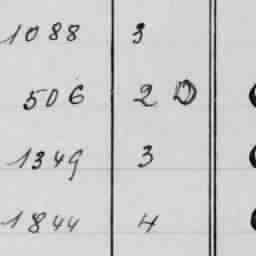 1088 3
506 2 D
1349 3
1844 4